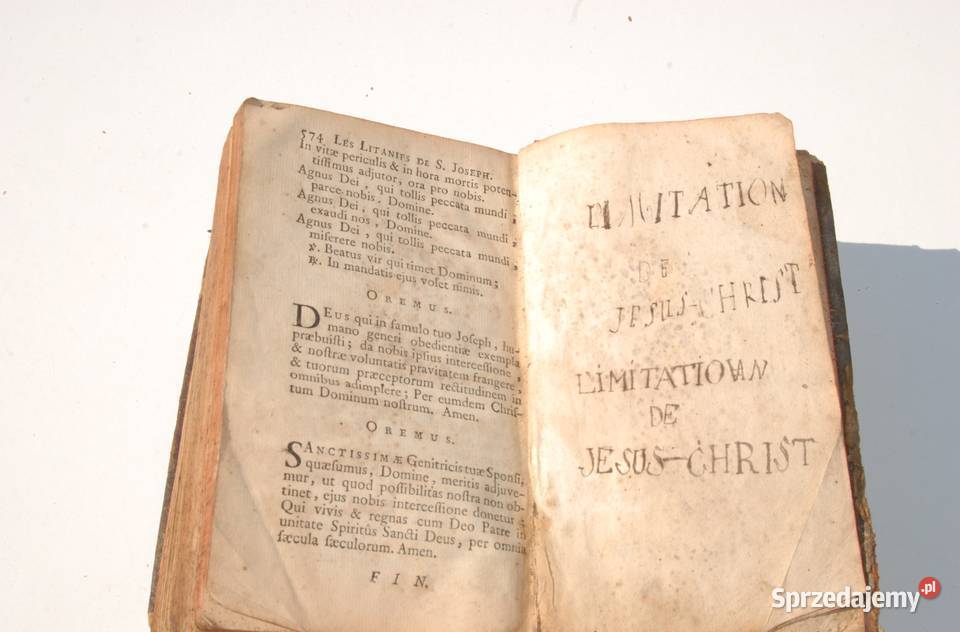 574 LES LITANIES DE S. JOSEPH.
In vitæ periculis & in hora mortis poten-
tissimus adjutor, ora pro nobis.
Agnus Dei, qui tollis peccata mundi,
parce nobis. Domine.
Agnus Dei, qui tollis peccata mundi,
exaudi nos, Domine.
Agnus Dei, qui tollis peccata mundi,
miserere nobis.
℣. Beatus vir qui timet Dominum;
℟. In mandatis ejus volet nimis.
OREMUS.
DEUS qui in famulo tuo Joseph, hu-
mano generi obedientiæ exempla
præbuisti; da nobis ipsius intercessione,
& nostræ voluntatis pravitatem frangere,
& tuorum præceptorum rectitudinem in
omnibus adimplere; Per eumdem Chris-
tum Dominum nostrum. Amen.
OREMUS.
SANCTISSIMÆ Genitricis tuæ Sponsi,
quæsumus, Domine, meritis adjuve-
mur, ut quod possibilitas nostra non ob-
tinet, ejus nobis intercessione donetur:
Qui vivis & regnas cum Deo Patre in
unitate Spiritûs Sancti Deus, per omnia
sæcula sæculorum. Amen.
FIN.
L'IMITATION
DE
JESUS-CHRIST
L'IMITATIOVN
DE
JESUS-CHRIST
Sprzedajemy.pl